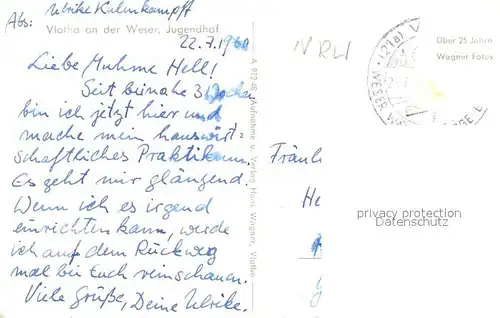 Abs: Ulrike Kulenkampff
Vlotho an der Weser, Jugendhof
22.7.1960
Liebe Muhme Hell!
Seit beinahe 3 Wochen
bin ich jetzt hier und
mache mein hauswirt-
schaftliches Praktikum.
Es geht mir glänzend.
Wenn ich es irgend
einrichten kann, werde
ich auf dem Rückweg
mal bei Euch reinschauen.
Viele Grüße, Deine Ulrike.
A 9248 Aufnahme u. Verlag Hans Wagner, Vlotho
NRW
(21a)
WESER
Über 25 Jahre
Wagner Fotos
Fräul
He
privacy protection
DATENSCHUTZ